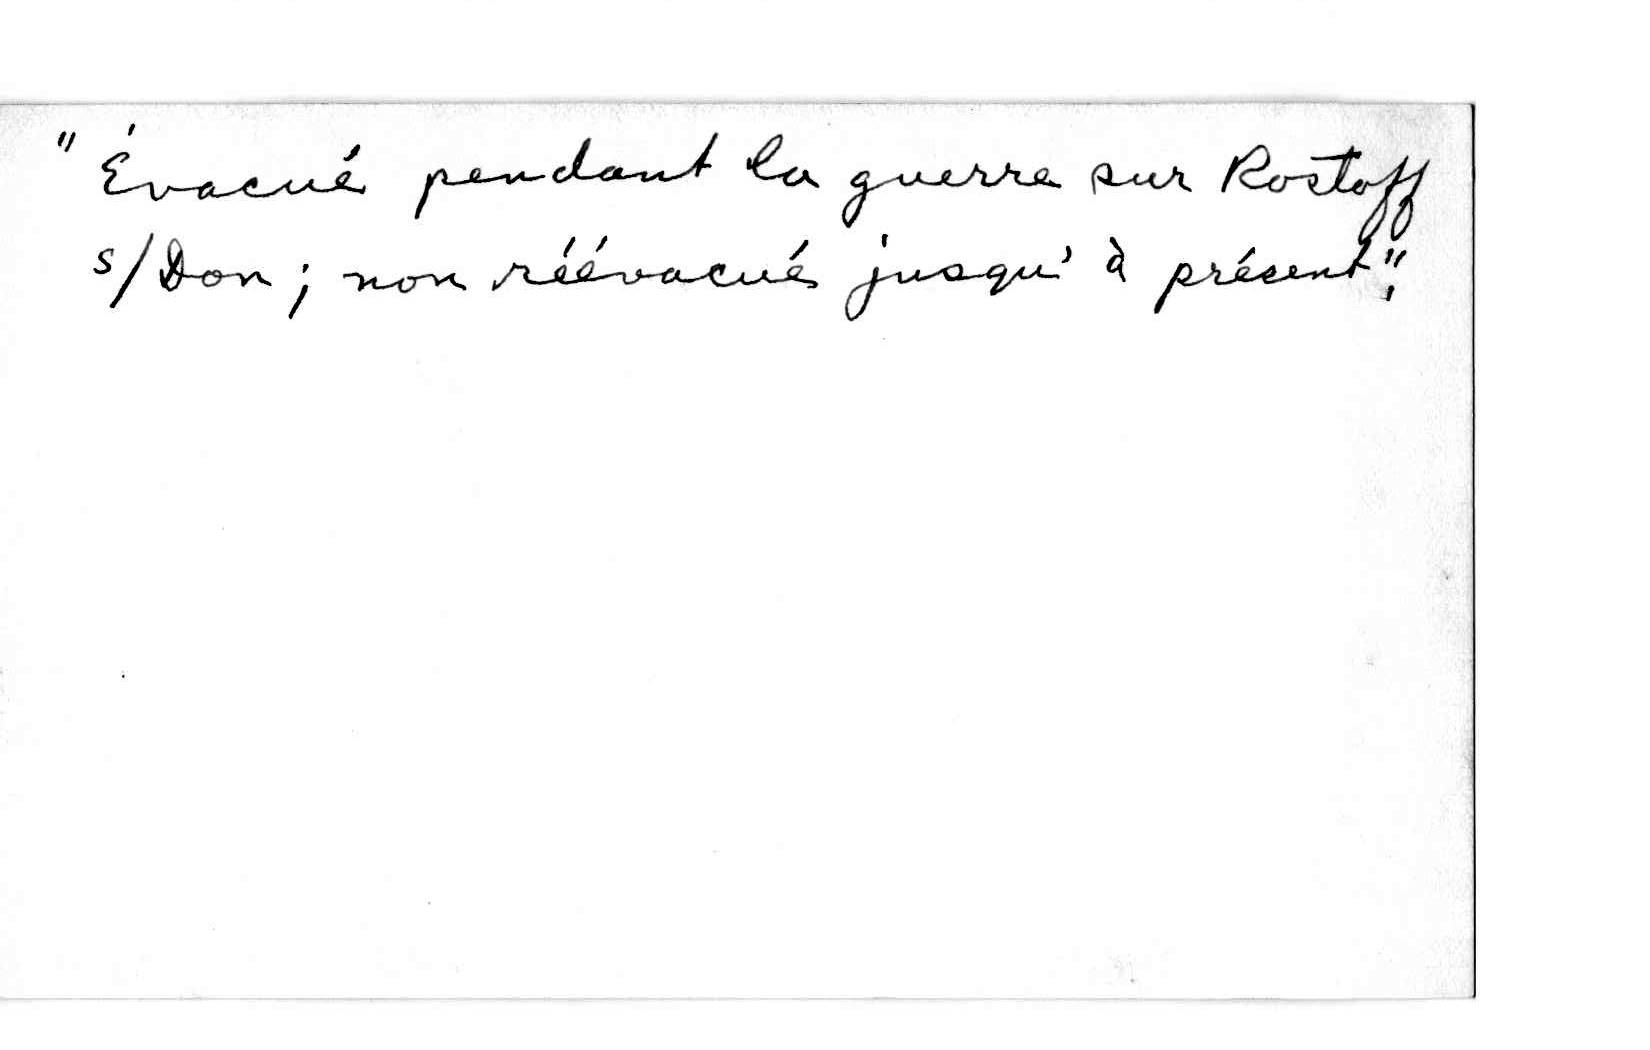 "Évacué pendant la guerre sur Rostoff
s/Don ; non réévacué jusqu'à présent",